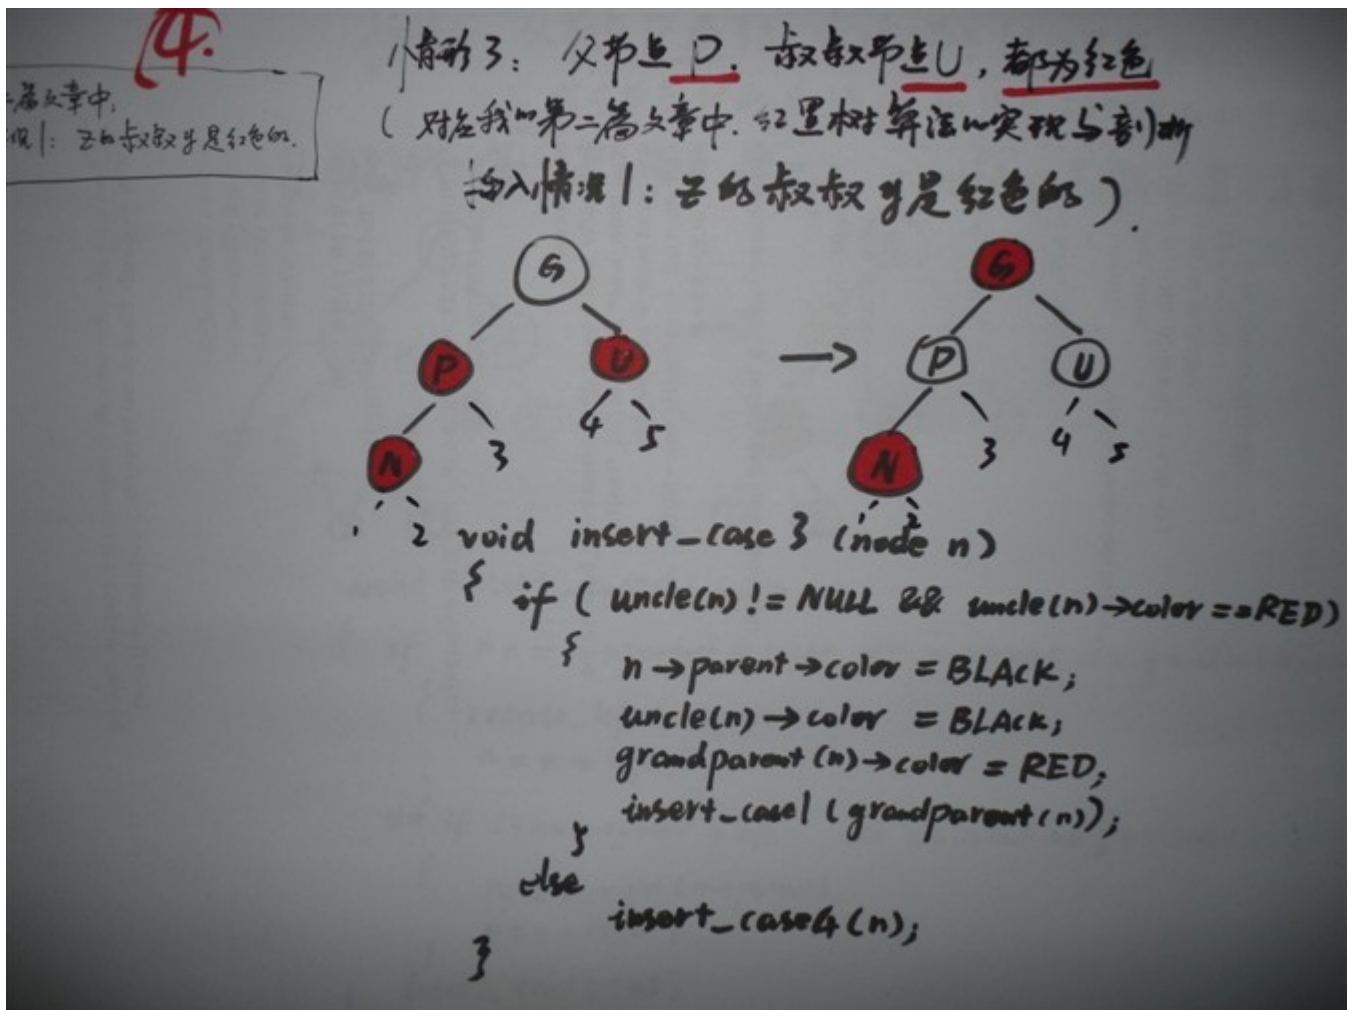 4.
二篇文章中,
况1: z的叔叔y是红色的.
情形3: 父节点P. 叔叔节点U, 都为红色
(对应我的第二篇文章中. 红黑树算法的实现与剖析
插入情况1: z的叔叔y是红色的).
G
G
P
U
P
U
N
3
4
5
N
3
4
5
1
2
1
2
void insert_case3 (node n)
{ if ( uncle(n) != NULL && uncle(n)->color == RED)
{
n->parent->color = BLACK;
uncle(n)->color = BLACK;
grandparent(n)->color = RED;
insert_case1 (grandparent(n));
}
else
insert_case4(n);
}